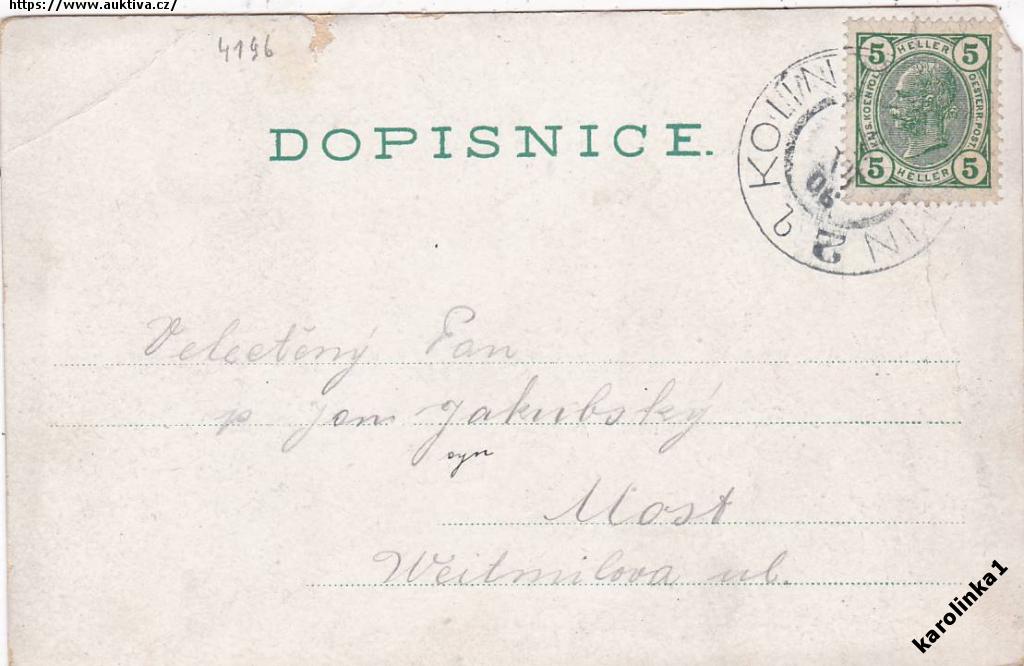 https://www.auktiva.cz/
4196
DOPISNICE.
KOLÍN
KOLIN
2
06
5 HELLER 5
KAIS. KOENIGL. OESTERR. POST
5 HELLER 5
Velectěný Pan
p Jan Jakubský
syn
Most
Weitmilova ul.
karolinka1